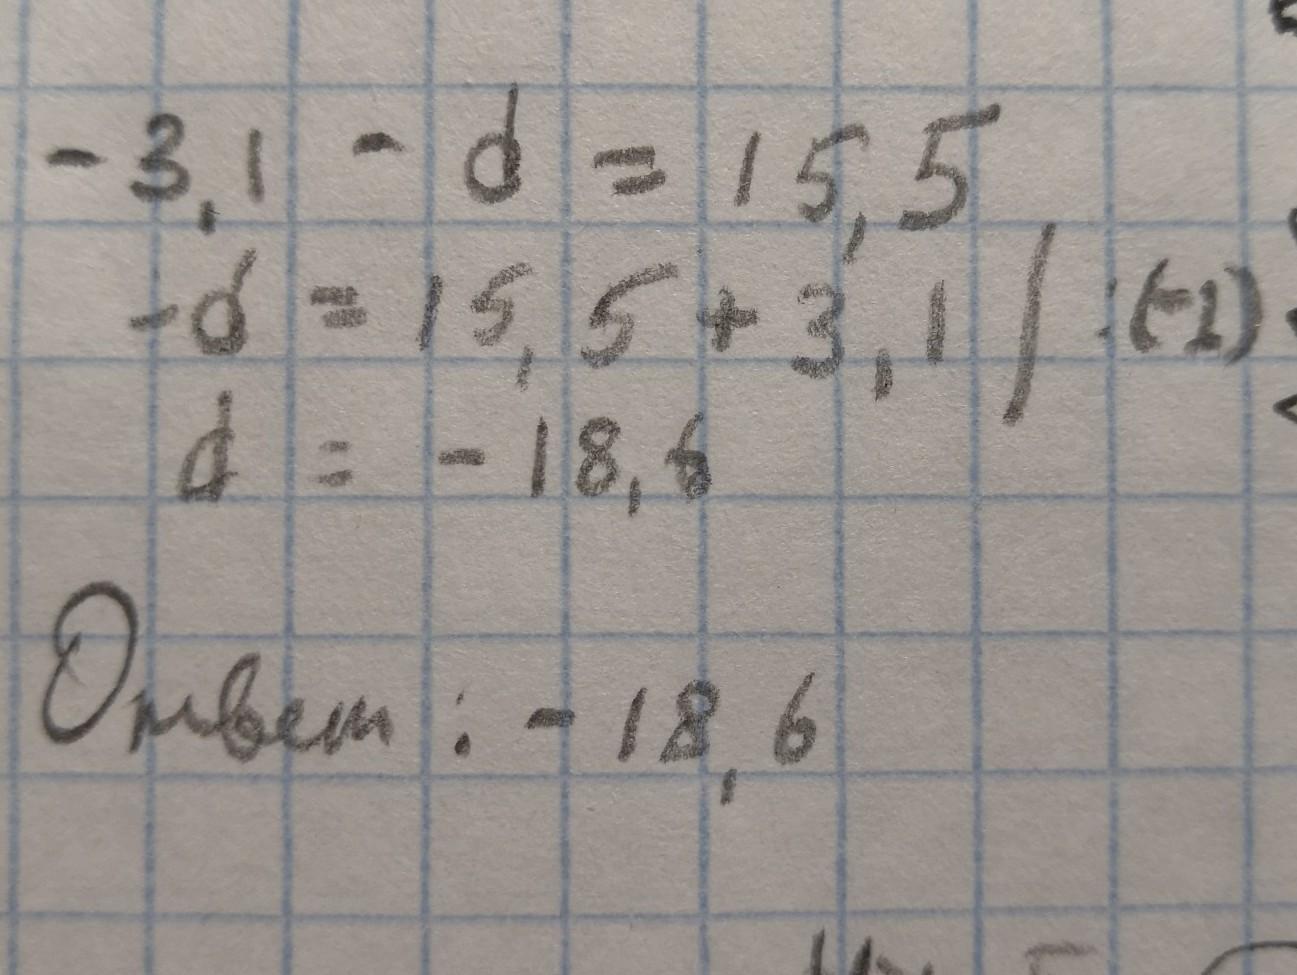 -3,1 - d = 15,5
-d = 15,5 + 3,1 | :(-1)
d = -18,6
Ответ: -18,6